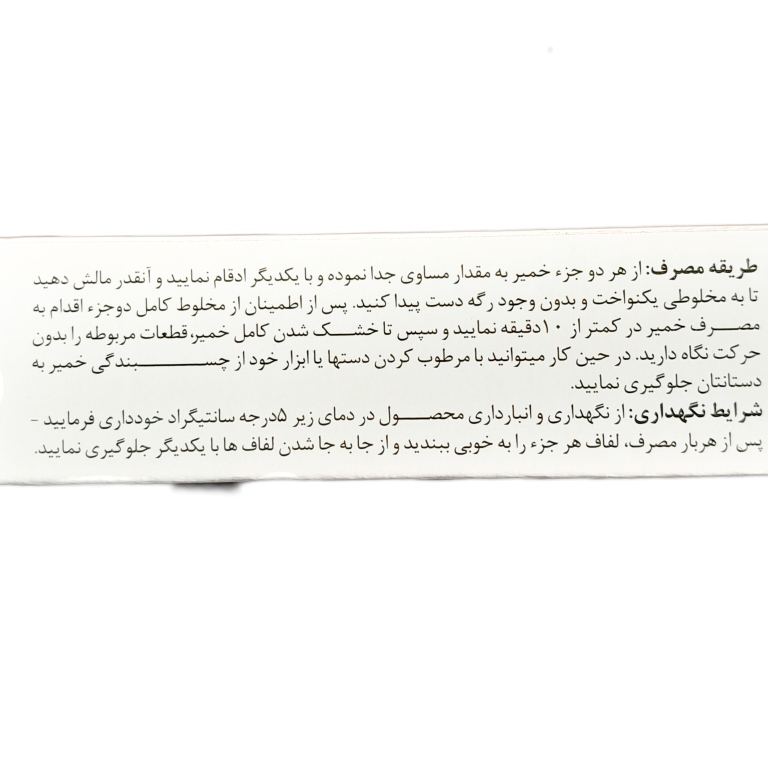 طریقه مصرف: از هر دو جزء خمیر به مقدار مساوی جدا نموده و با یکدیگر ادقام نمایید و آنقدر مالش دهید
تا به مخلوطی یکنواخت و بدون وجود رگه دست پیدا کنید. پس از اطمینان از مخلوط کامل دوجزء اقدام به
مصـــرف خمیر در کمتر از ۱۰دقیقه نمایید و سپس تا خشـــک شدن کامل خمیر،قطعات مربوطه را بدون
حرکت نگاه دارید. در حین کار میتوانید با مرطوب کردن دستها یا ابزار خود از چســـــــــبندگی خمیر به
دستانتان جلوگیری نمایید.
شرایط نگهداری: از نگهداری و انبارداری محصـــول در دمای زیر ۵درجه سانتیگراد خودداری فرمایید -
پس از هربار مصرف، لفاف هر جزء را به خوبی ببندید و از جا به جا شدن لفاف ها با یکدیگر جلوگیری نمایید.